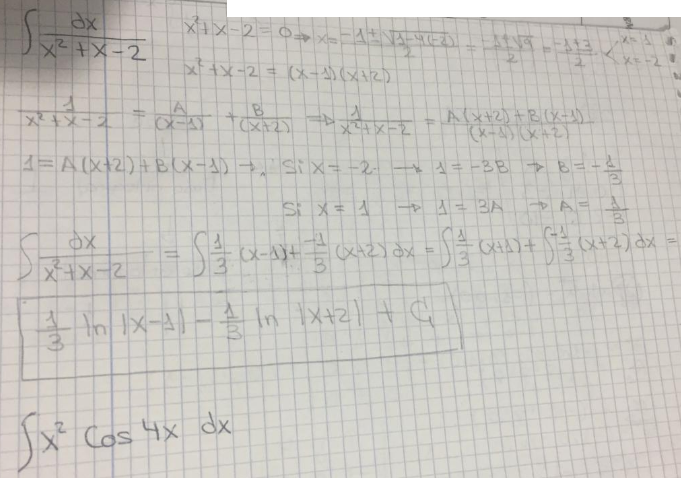 ∫ dx/(x² + x - 2)    x² + x - 2 = 0 → x = (-1 ± √(1 - 4(-2)))/2 = (-1 ± √9)/2 = (-1 ± 3)/2 < x = 1, x = -2
x² + x - 2 = (x-1)(x+2)
1/(x² + x - 2) = A/(x-1) + B/(x+2) → 1/(x² + x - 2) = (A(x+2) + B(x-1))/((x-1)(x+2))
1 = A(x+2) + B(x-1) → Si x = -2 → 1 = -3B → B = -1/3
Si x = 1 → 1 = 3A → A = 1/3
∫ dx/(x² + x - 2) = ∫ 1/3 (x-1) + -1/3 (x+2) dx = ∫ 1/3 (x+1) + ∫ -1/3 (x+2) dx =
1/3 ln |x-1| - 1/3 ln |x+2| + C₁
∫ x² Cos 4x dx